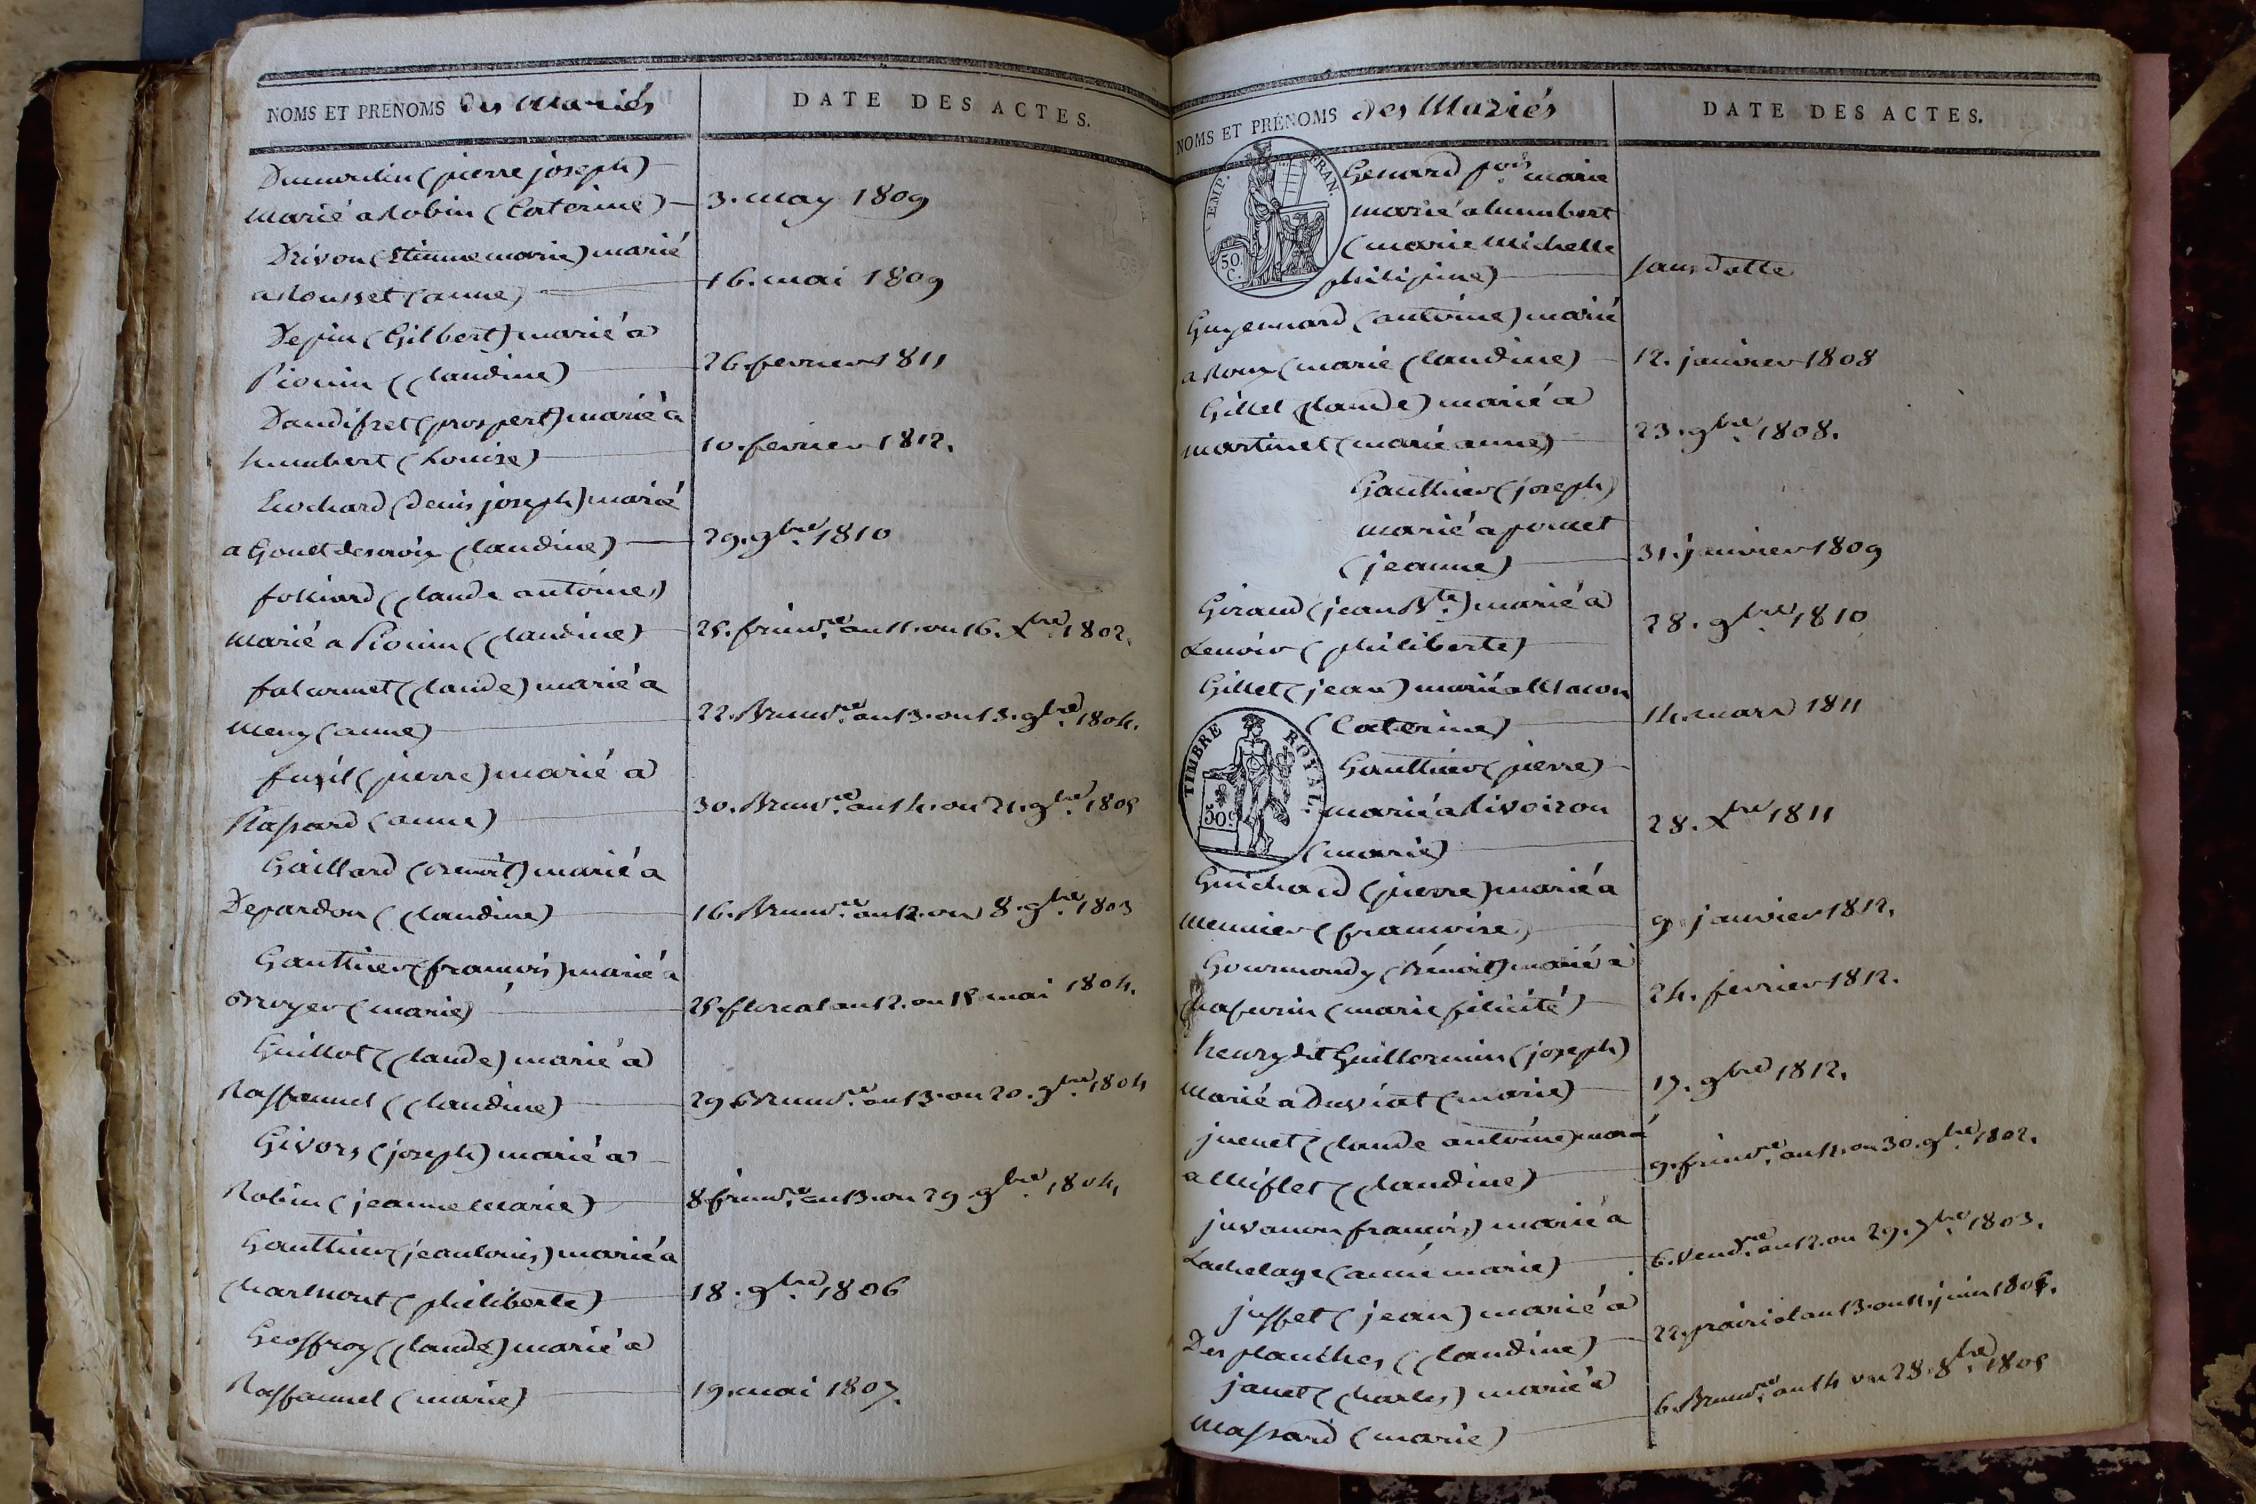 NOMS ET PRENOMS des Mariés
DATE DES ACTES.
Dumoulin (pierre joseph)
marié a Robin (Caterine)
3. may 1809
Drivon (Etienne marie) marié
a Rousset (anne)
16. mai 1809
Depin (Gilbert) marié a
Pionin (Claudine)
26. fevrier 1811
Daudifret (prospert) marié a
humbert (Louise)
10. fevrier 1812.
marié
a Gonet descroix (Claudine)
29. 9bre. 1810
(Claude antoine)
marié a Pionin (Claudine)
25. frimre. an 11. ou 16. Xbre. 1802.
falconnet (Claude) marié a
(anne)
22. Brumre. an 13. ou 13. 9bre. 1804.
fusil (pierre) marié a
Passard (anne)
30. Brumre. an 14. ou 21. 9bre. 1805
Gaillard (Benoit) marié a
Depardon (Claudine)
16. Brumre. an 12. ou 8. 9bre. 1803
Gauthier (francois) marié a
Broyer (marie)
25. floreal an 12. ou 15 mai 1804.
Guillot (Claude) marié a
Raffannel (Claudine)
29 Brumre. an 13. ou 20. 9bre. 1804
Givors (joseph) marié a
Robin (jeanne Marie)
8 frimre. an 13. ou 29. 9bre. 1804.
Gauthier (jean louis) marié a
Charmont (philiberte)
18. 9bre. 1806
Geoffroy (Claude) marié a
Raffannel (marie)
19. mai 1807.
NOMS ET PRÉNOMS des Mariés
DATE DES ACTES.
EMP. FRAN.
50.
C.
Genard fois. marie
marié a humbert
(marie Michelle
philipine)
sans datte
Guyennard (antoine) marié
a Roux (marie Claudine)
12. janvier 1808
Gillet (Claude) marié a
martinet (marie anne)
23. 9bre. 1808.
Gauthier (joseph)
marié a
(jeanne)
31. janvier 1809
Giraud (jean Bte.) marié a
Lenoir (philiberte)
28. 9bre. 1810
Gillet (jean) marié a Macon
(Caterine)
14. mars 1811
TIMBRE ROYAL.
50c
Gauthier (pierre)
marié a Rivoiron
(marie)
28. Xbre. 1811
Guichard (pierre) marié a
Meunier (francoise)
9. janvier 1812.
Gourmondy (Bénoit) marié a
(marie félicité)
24. fevrier 1812.
henry dit Guillermin (joseph)
marié a Duviat (marie)
17. 9bre 1812.
juenet (Claude antoine) marié
a Miflet (Claudine)
9. frimre. an 11. ou 30. 9bre. 1802.
juvanon francois) marié a
Lachelage (anne marie)
6. vendre. an 12. ou 29. 7bre. 1803.
juffet (jean) marié a
Des planches (Claudine)
22. prairial an 13. ou 11. juin 1805.
janet (Charles) marié a
Massard (marie)
6. Brumre. an 14 ou 28. 8bre. 1805